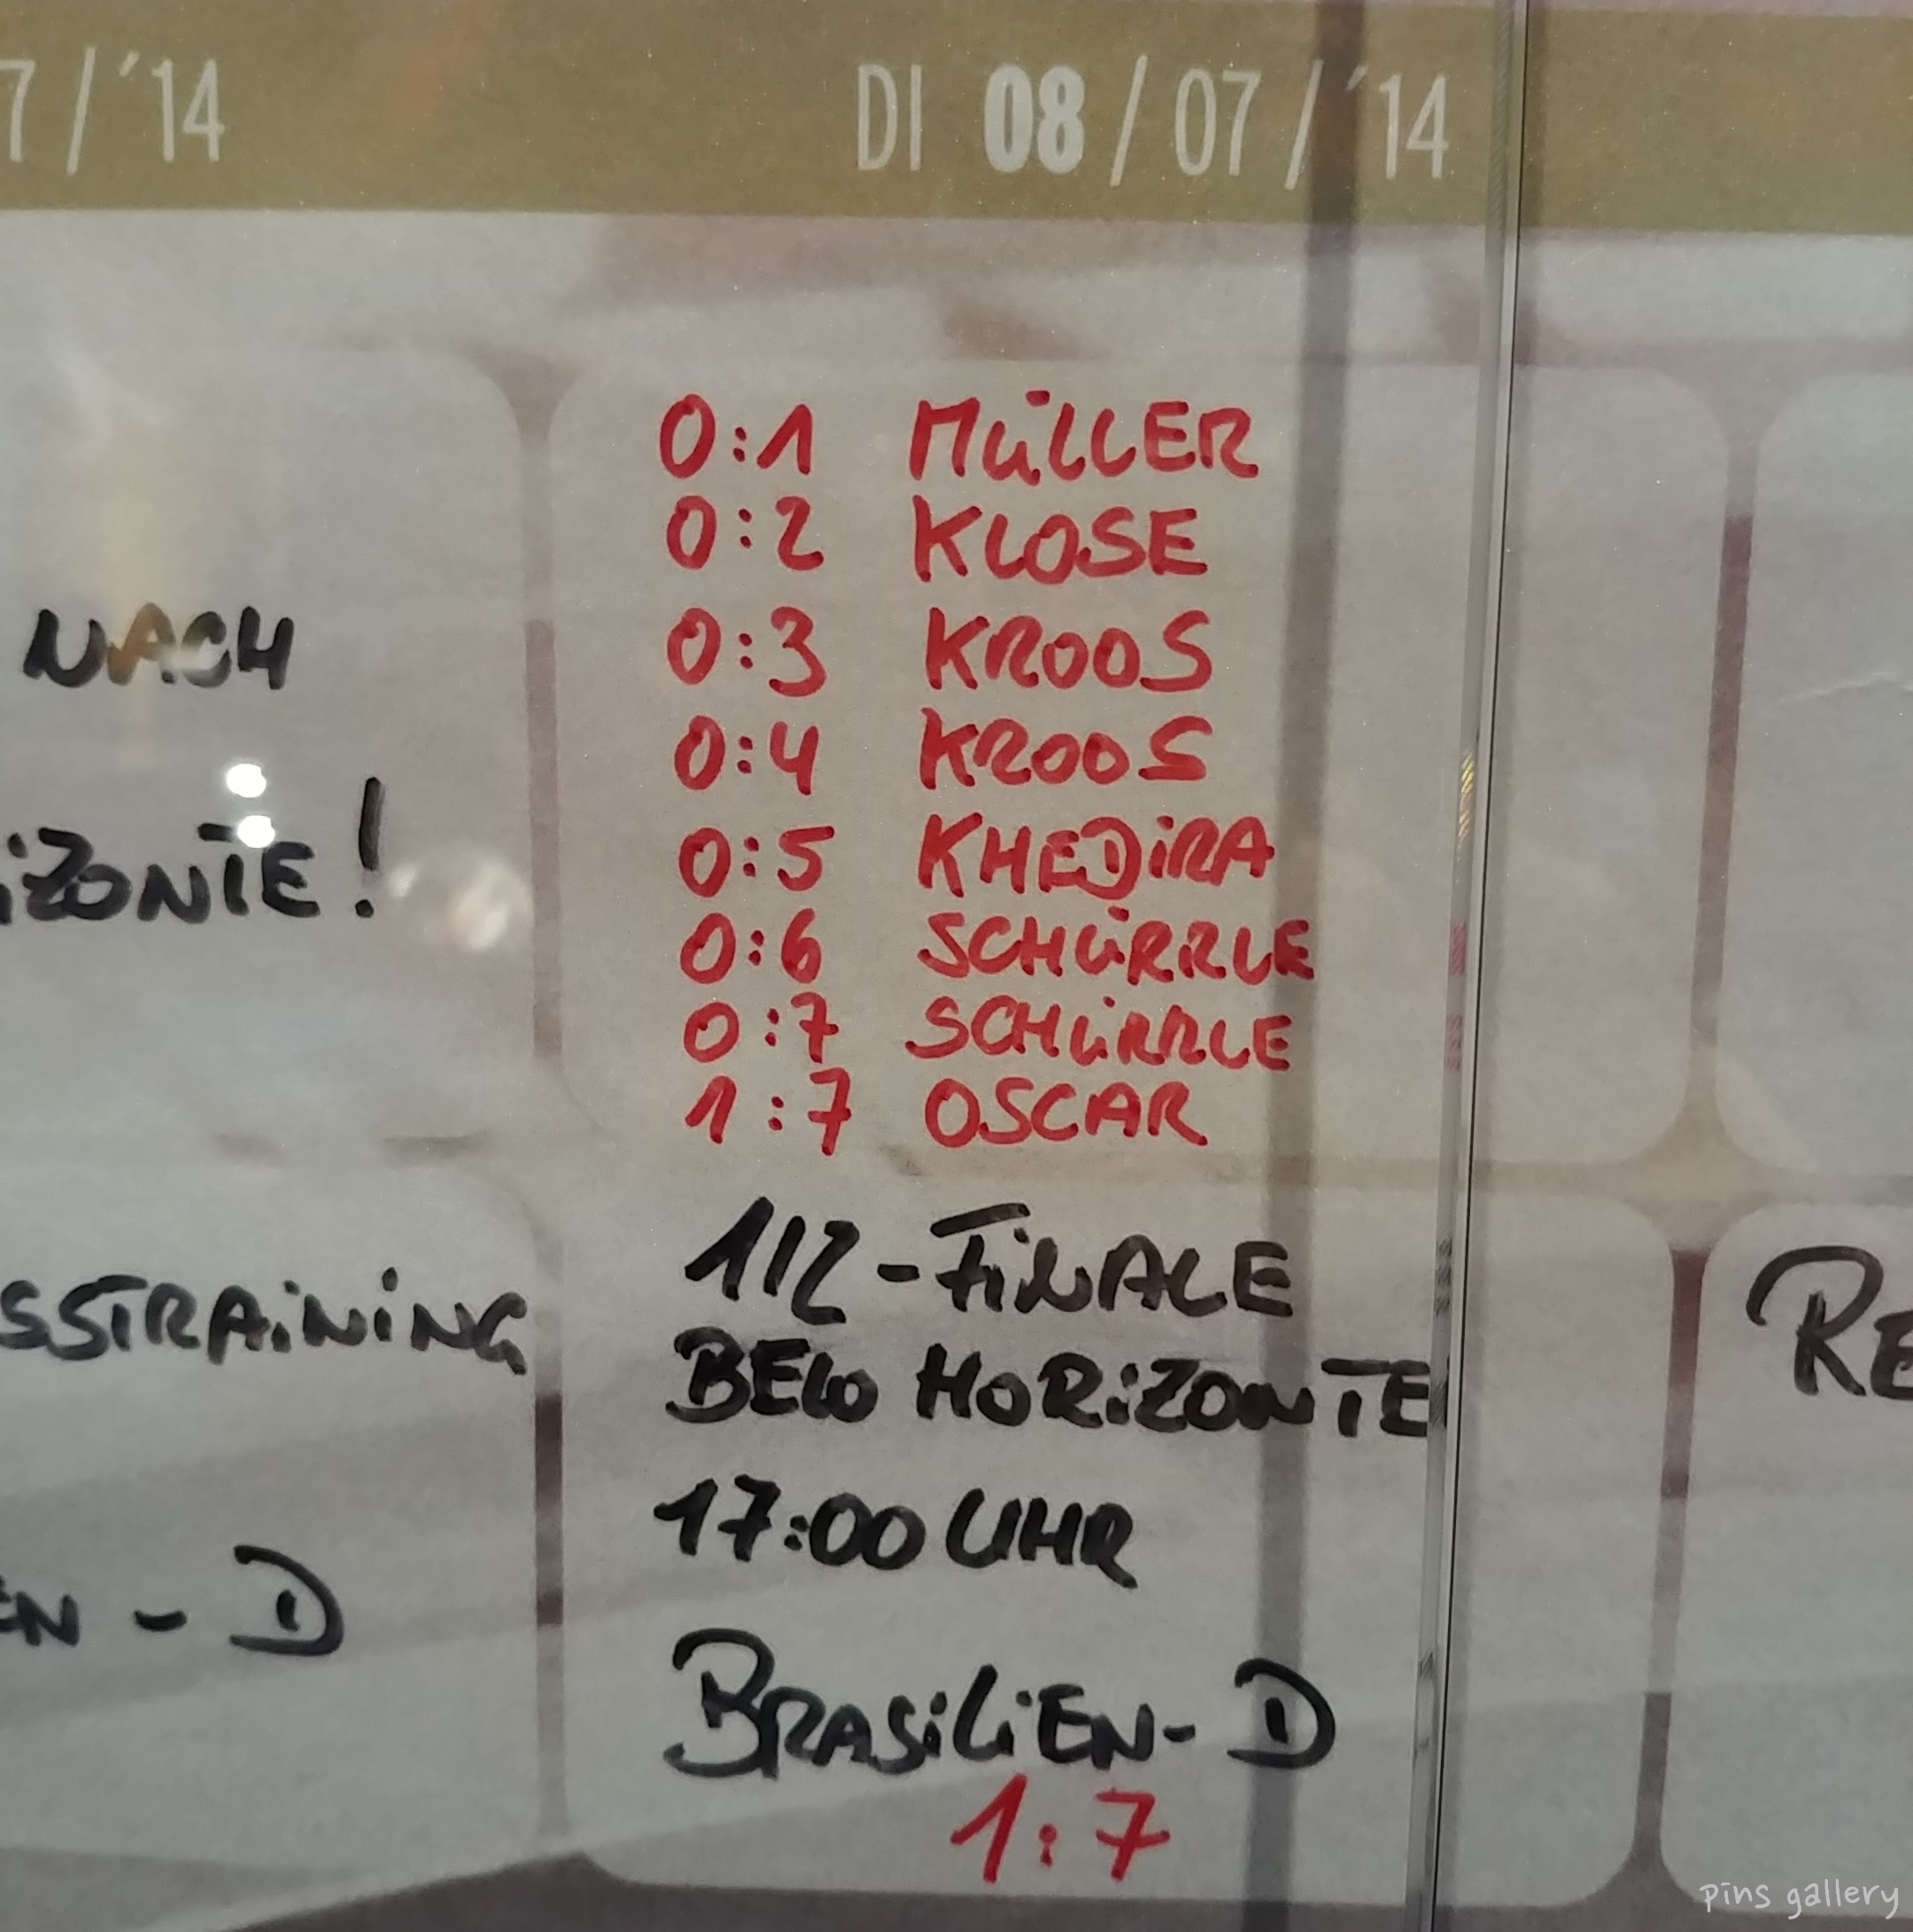 7/'14
DI 08/07/'14
NACH
iZONTE!
SSTRAiNiNG
EN - D
0:1 MüLLER
0:2 KLOSE
0:3 KROOS
0:4 KROOS
0:5 KHEDiRA
0:6 SCHüRRLE
0:7 SCHüRRLE
1:7 OSCAR
1/2-FiNALE
BELO HORiZONTE
17:00 UHR
BRASiLiEN- D
1:7
RE
pins gallery